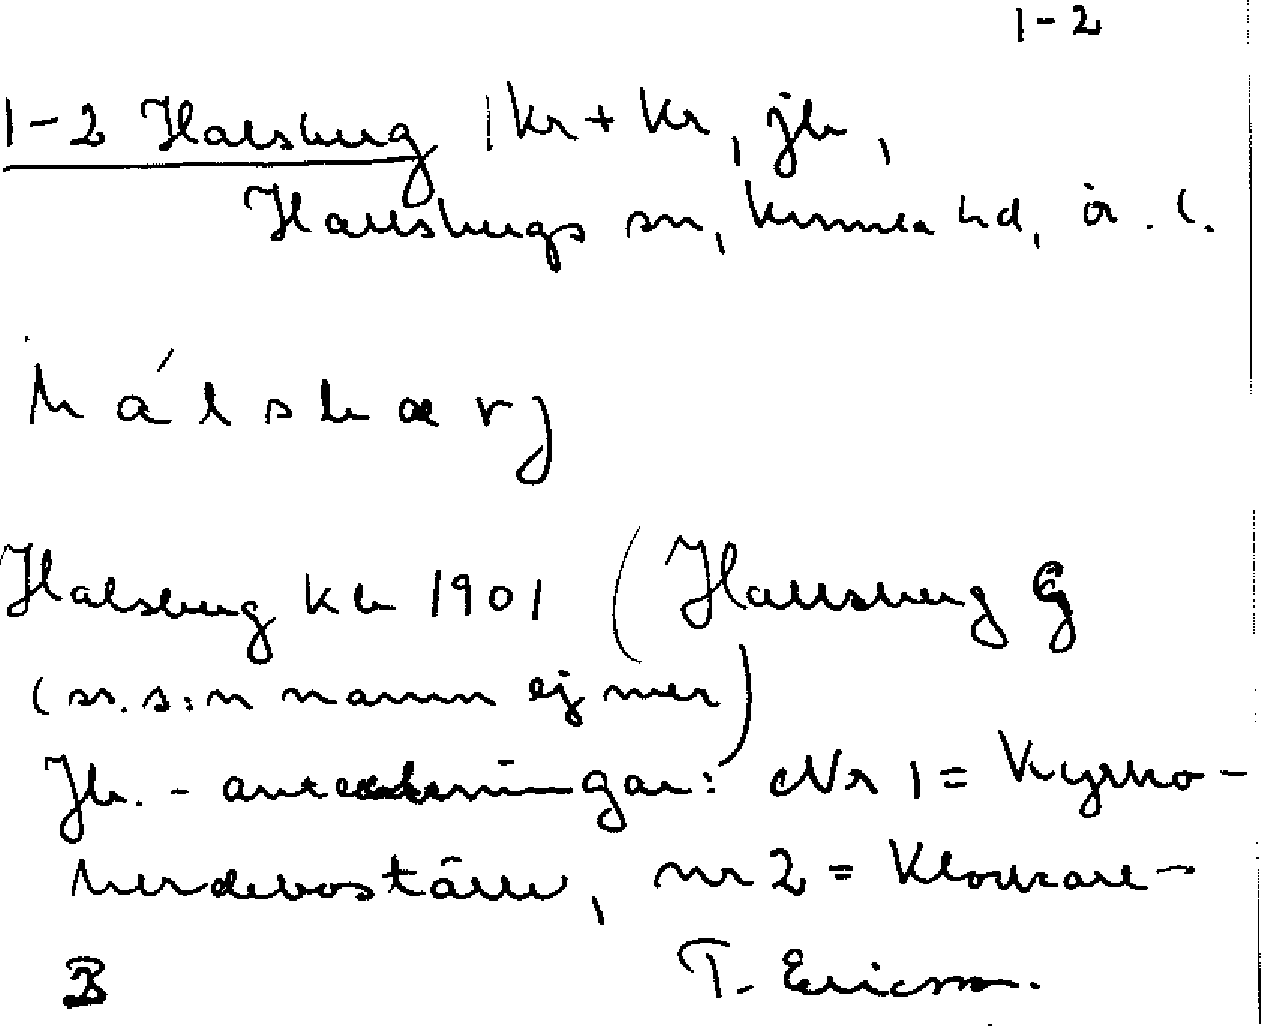 1-2
1-2 Halsberg 1 kr + kr, jb,
Hallsbergs sn, Kumla hd, ör. l.
hálsbærj
Halsberg kb 1901 (Hallsberg G
(ss. s:n namn ej mer)
Jb.-anteckningar: Nr 1 = Kyrko-
herdeboställe, nr 2 = Klockare-
B T. Ericsson.